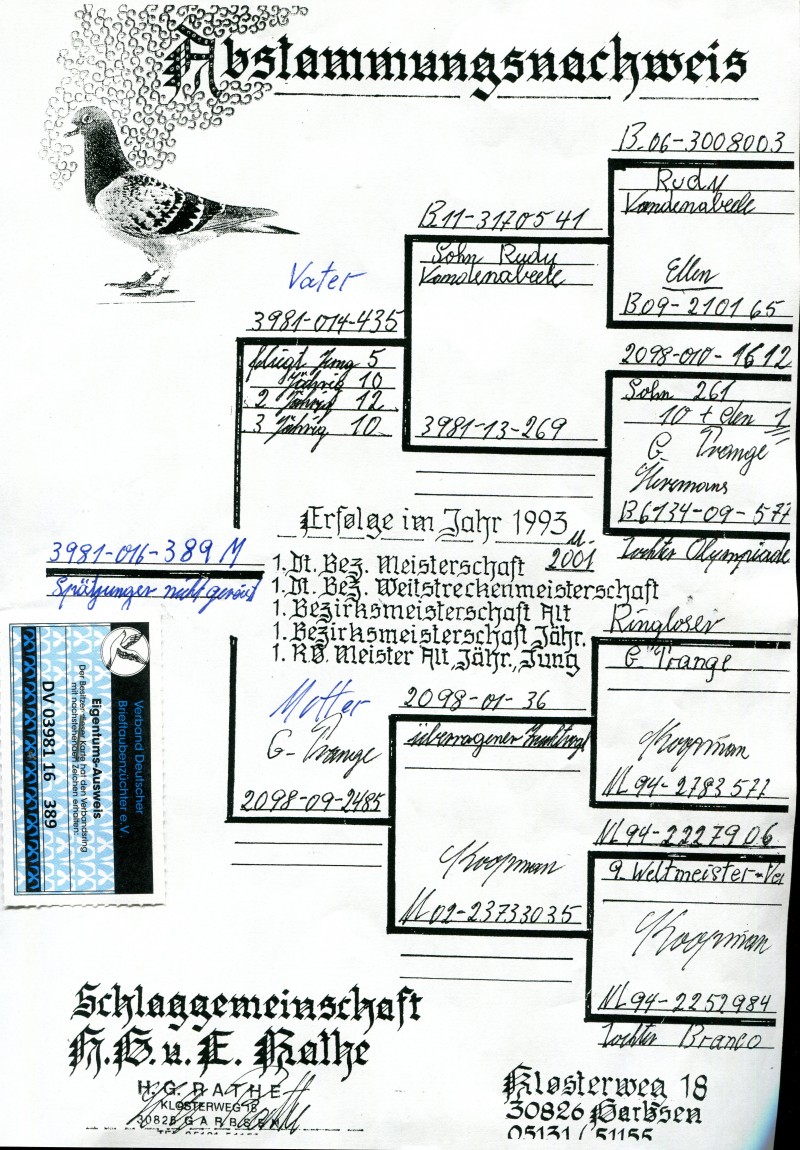 Abstammungsnachweis
B.06-3008003
Rudy
Vandenabeele
Ellen
B09-210165
B11-3170541
Sohn Rudy
Vandenabeele
Vater
3981-014-435
fliegt Jung 5
Jährig 10
2 Jährig 12
3 Jährig 10
3981-13-269
2098-010-1612
Sohn 261
10 + den 1
G. Prange
Heremans
B6134-09-577
Tochter Olympiade
Erfolge im Jahr 1993 u.
2001
1. Dt. Bez. Meisterschaft
1. Dt. Bez. Weitstreckenmeisterschaft
1. Bezirksmeisterschaft Alt
1. Bezirksmeisterschaft Jähr.
1. R.V. Meister Alt, Jähr., Jung
3981-016-389 M
Spätjunger nicht gereist
Ringloser
G. Prange
Koopman
NL 94-2783577
Mutter
G. Prange
2098-09-2485
2098-01-36
überragener
Koopman
NL 02-23733035
NL 94-2227906
9. Weltmeister-Ver
Koopman
NL 94-2252984
Tochter Branco
Verband Deutscher
Brieftaubenzüchter e.V.
Eigentums-Ausweis
Der Besitzer dieser Karte hat den Verbandsring
mit nachstehenden Zeichen erhalten:
DV 03981 16 389
Schlaggemeinschaft
H.G. u. E. Rathe
H.G. RATHE
KLOSTERWEG 18
30826 GARBSEN
Klosterweg 18
30826 Garbsen
05131 / 51155